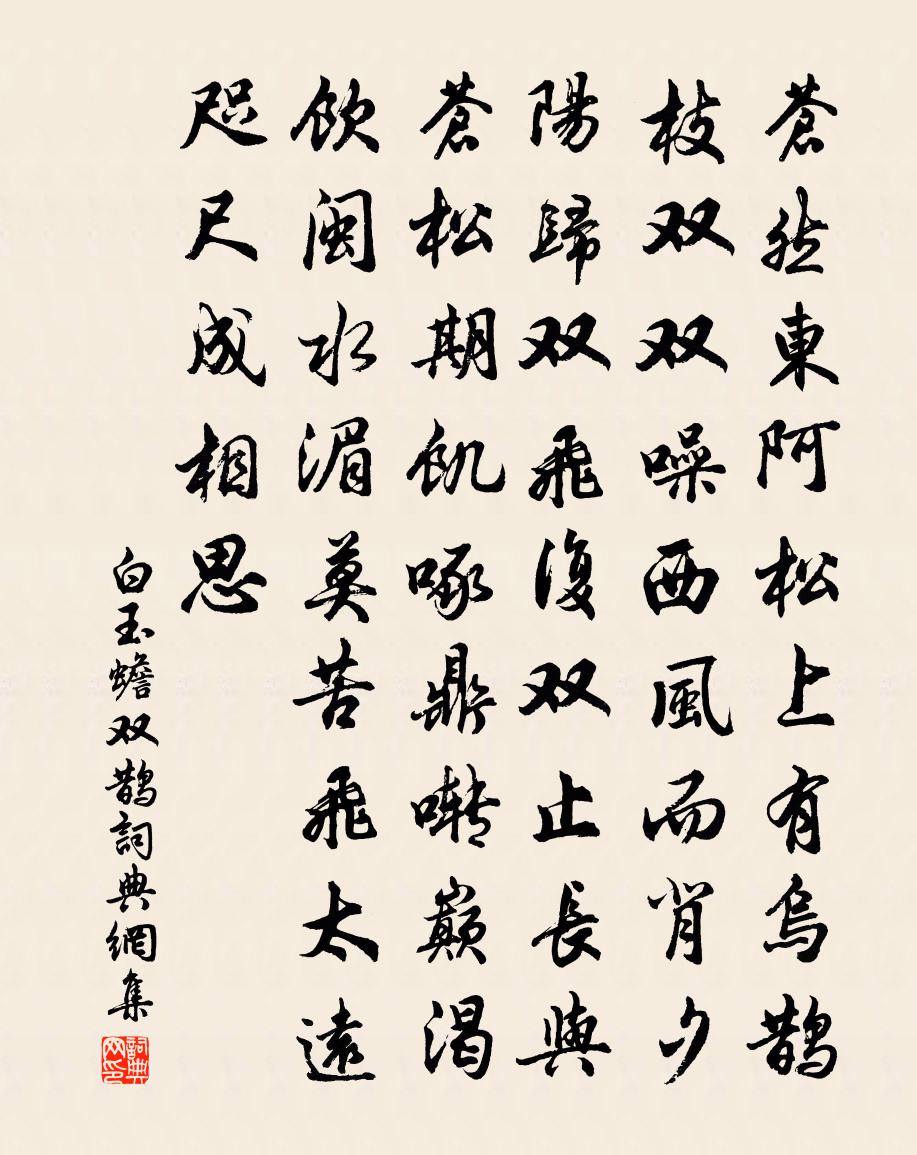 蒼然東阿松上有烏鵲
枝双双噪西風而背夕
陽歸双飛復双止長與
蒼松期飢啄鼎巔渴
飲閩水湄莫苦飛太遠
咫尺成相思
白玉蟾双鵲詞典網集
詞典网印